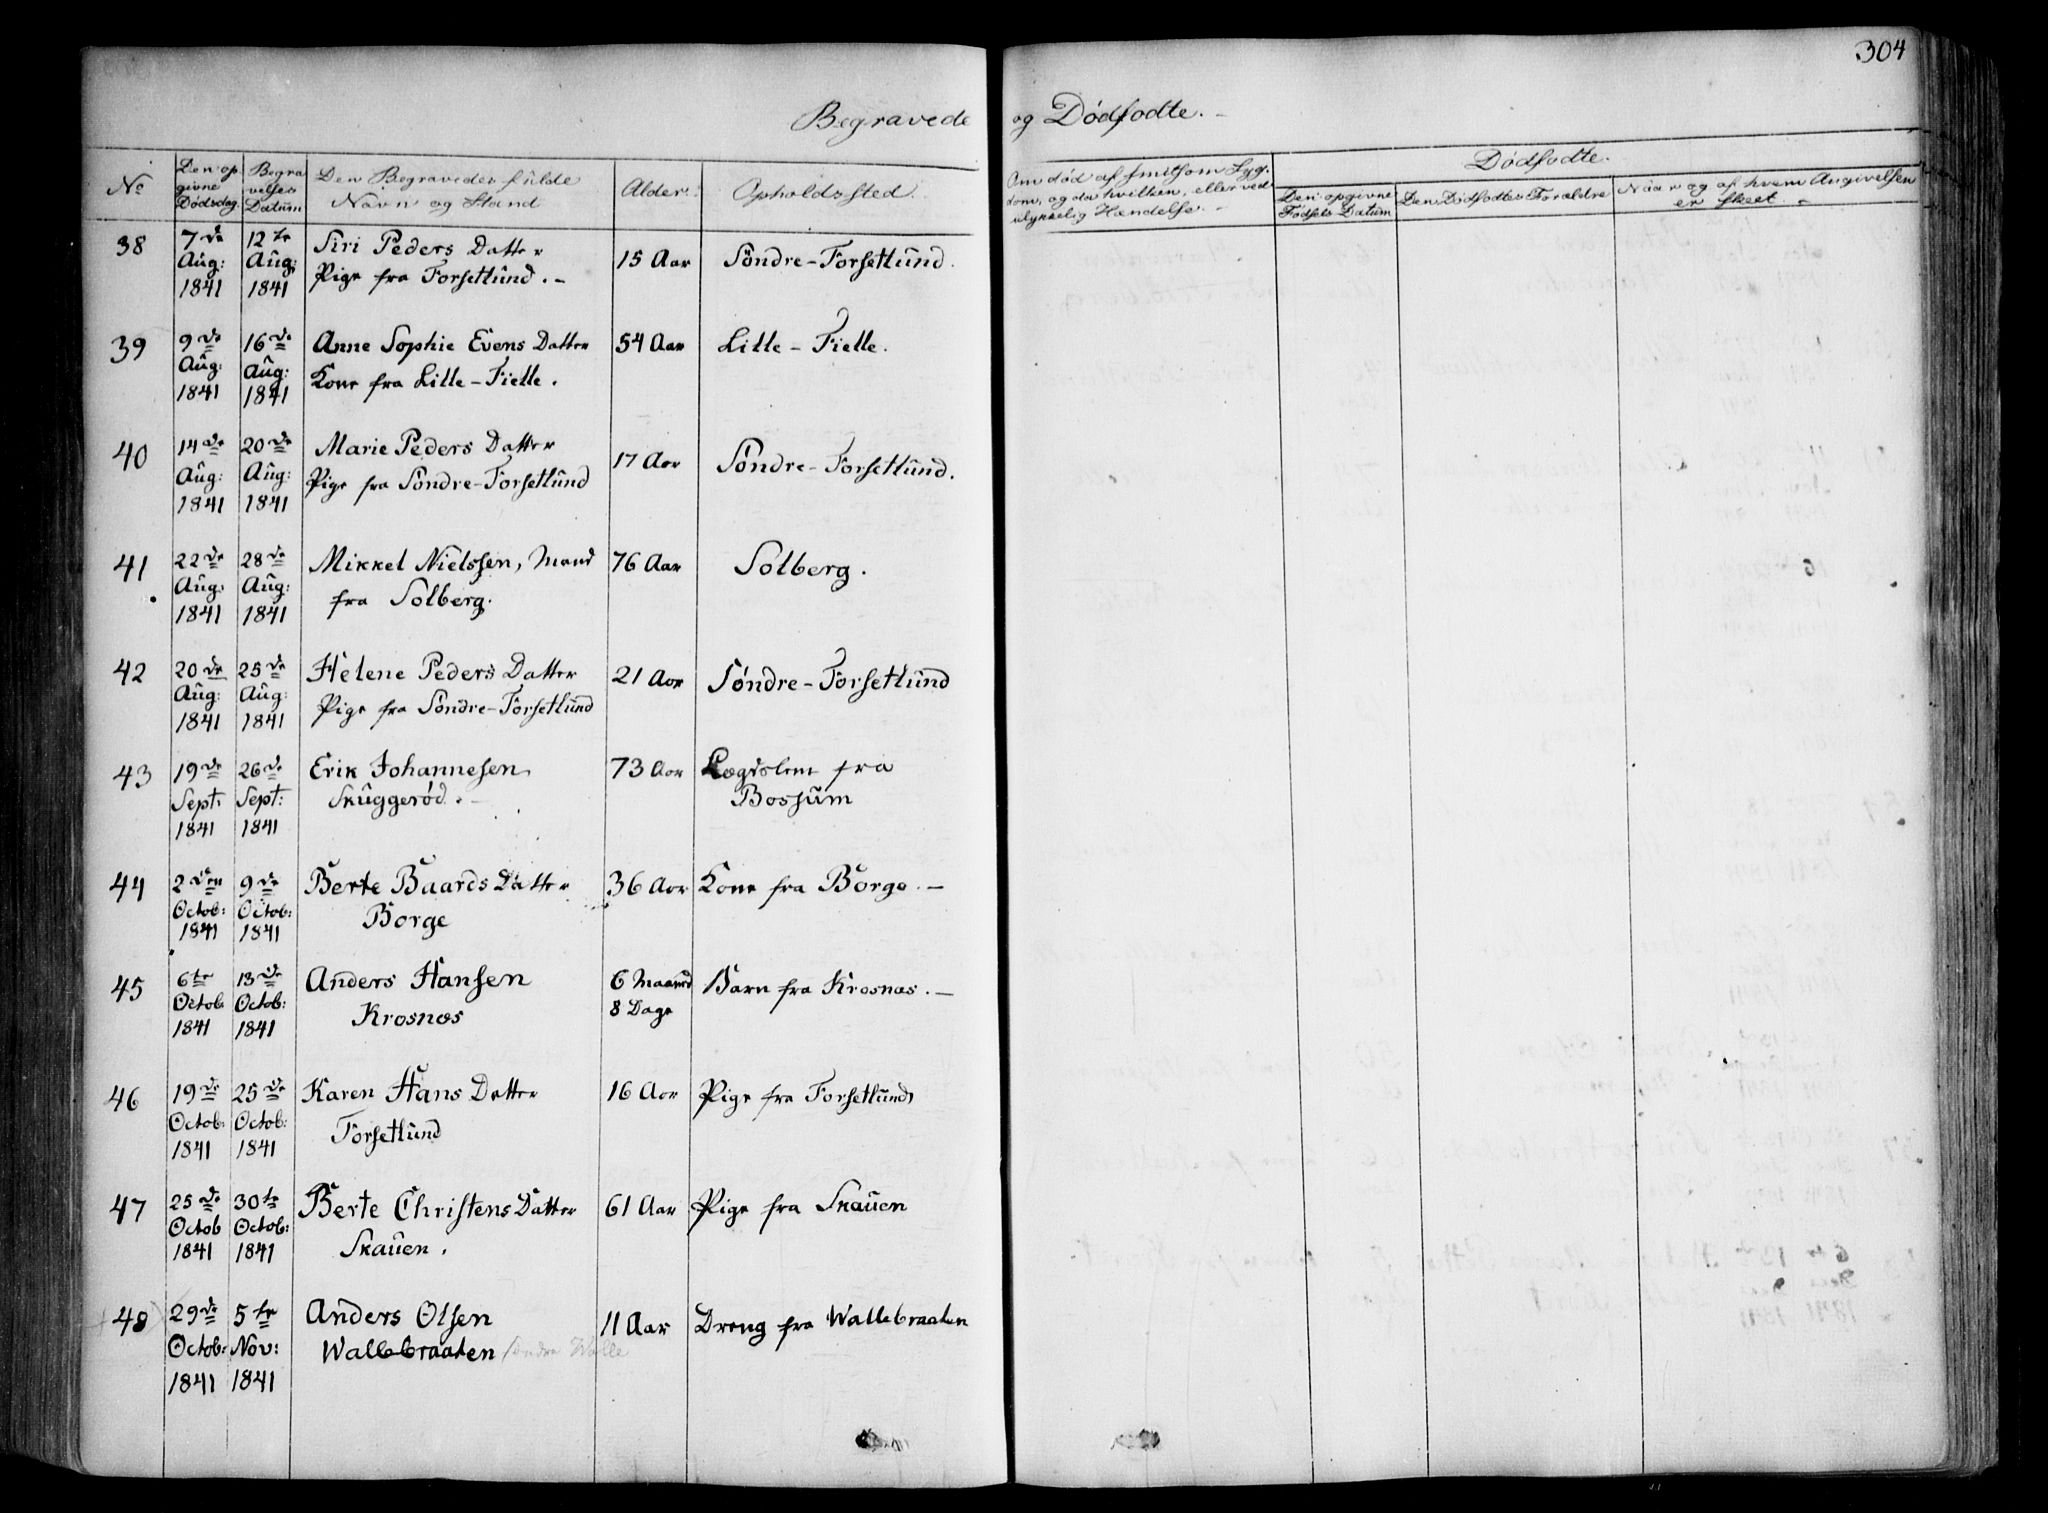 304
Begravede og Dødfødte. -
No
Den op-
givne
Dødsdag.
Begra
velses
Datum
Den Begravedes fulde
Navn og Stand
Alder.
Opholdssted.
Om død af smitsom Syg-
dom, og da hvilken, eller ved
ulykkelig Hændelse. -
Dødfødte.
Den opgivne
Fødsels Datum
Den Dødfødtes Forældre
Naar og af hvem Angivelsen
er skeet. -
38
7de
Aug:
1841
12te
Aug:
1841
Siri Peders Datter
Pige fra Forsetlund. -
15 Aar
Söndre-Forsetlund.
39
9de
Aug:
1841
16de
Aug:
1841
Anne Sophie Evens Datter
Kone fra Lille-Fielle.
54 Aar
Lille-Fielle.
40
14de
Aug:
1841
20de
Aug:
1841
Marie Peders Datter
Pige fra Söndre-Forsetlund
17 Aar
Söndre-Forsetlund.
41
22de
Aug:
1841
28de
Aug:
1841
Mikkel Nielssen, Mand
fra Solberg.
76 Aar
Solberg.
42
20de
Aug:
1841
25de
Aug:
1841
Helene Peders Datter
Pige fra Söndre-Forsetlund
21 Aar
Søndre-Forsetlund
43
19de
Sept:
1841
26de
Sept:
1841
Erik Johannesen
Skuggerød. -
73 Aar
Lægdslem fra
Bossum
44
2den
Octob:
1841
9de
Octob:
1841
Berte Baards Datter
Borge
36 Aar
Kone fra Borge. -
45
6te
Octob:
1841
13de
Octob:
1841
Anders Hansen
Krosnæs
6 Maaned
8 Dage
Barn fra Krosnæs. -
46
19de
Octob:
1841
25de
Octob:
1841
Karen Hans Datter
Forsetlund
16 Aar
Pige fra Forsetlund
47
25de
Octob
1841
30te
Octob:
1841
Berte Christens Datter
Skauen.
61 Aar
Pige fra Skauen
48
29de
Octob:
1841
5te
Nov:
1841
Anders Olsen
Wallebraaten søndre Walle
11 Aar
Dreng fra Wallebraaten